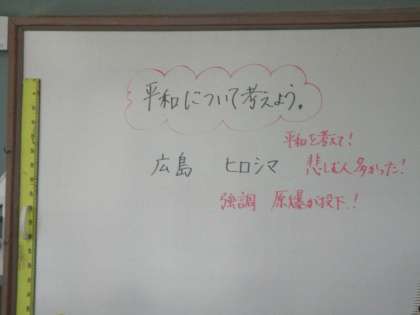 平和について考えよう。
平和を考えて!
広島 ヒロシマ 悲しむ人多かった!
強調 原爆が投下!